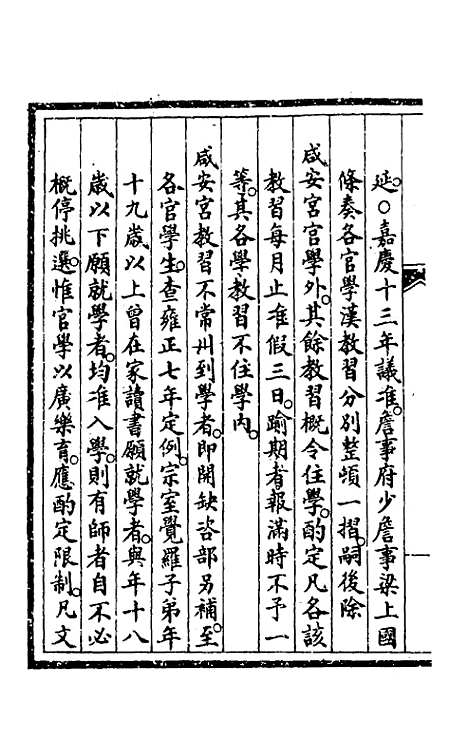 延。○嘉慶十三年議准。詹事府少詹事梁上國
條奏各官學漢教習分別整頓一摺。嗣後除
咸安宮官學外。其餘教習概令住學。酌定凡各該
教習每月止准假三日。踰期者報滿時不予一
等。其各學教習不住學內。
咸安宮教習不常川到學者。即開缺咨部另補。至
各官學生。查雍正七年定例。宗室覺羅子弟年
十九歲以上曾在家讀書願就學者。與年十八
歲以下願就學者。均准入學。則有師者自不必
概停挑選。惟官學以廣樂育。應酌定限制。凡文